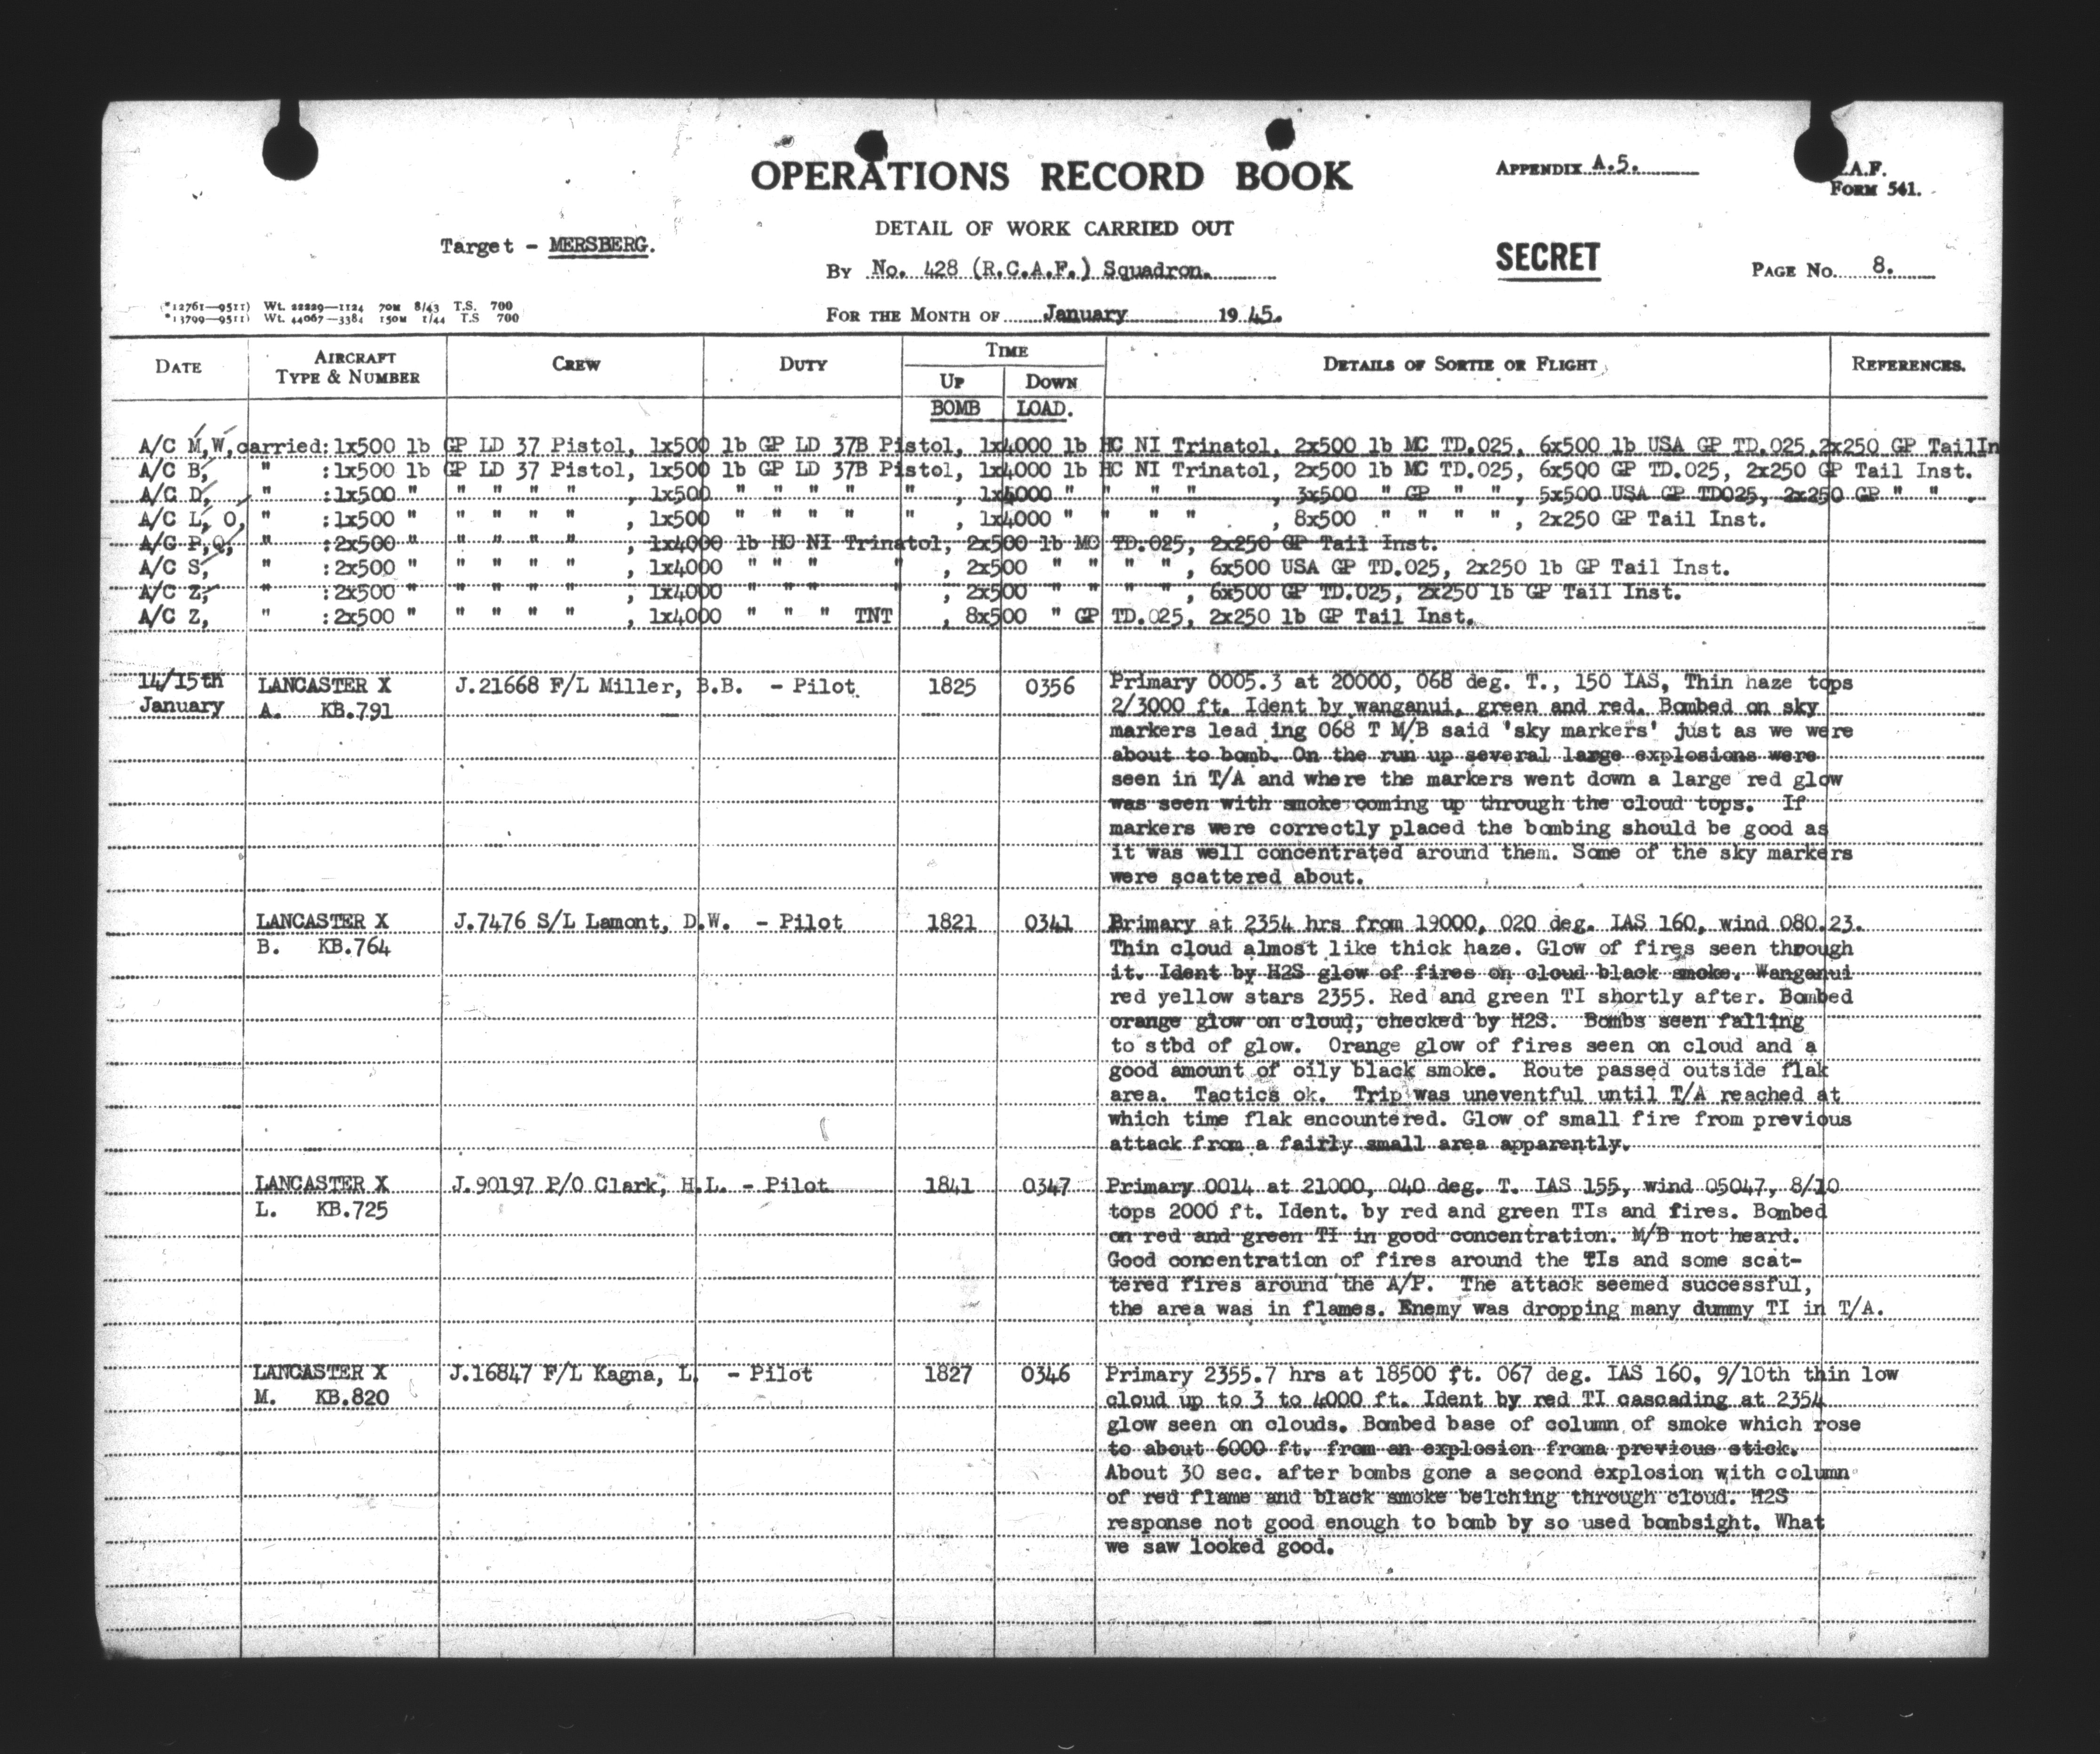 OPERATIONS RECORD BOOK
APPENDIX A.5.
A.F.
FORM 541.
DETAIL OF WORK CARRIED OUT
Target - MERSBERG.
SECRET
BY No. 428 (R.C.A.F.) Squadron.
PAGE No. 8.
(*12761—9511) Wt. 22229—1124 70M 8/43 T.S. 700
*13799—9511) Wt. 44067—3384 150M 1/44 T.S 700
FOR THE MONTH OF January 1945.
DATE
AIRCRAFT TYPE & NUMBER
CREW
DUTY
TIME
UP
DOWN
DETAILS OF SORTIE OR FLIGHT
REFERENCES.
BOMB LOAD.
A/C M,W,carried:1x500 lb GP LD 37 Pistol, 1x500 lb GP LD 37B Pistol, 1x4000 lb HC NI Trinatol, 2x500 lb MC TD.025, 6x500 lb USA GP TD.025,2x250 GP TailIn
A/C B, " :1x500 lb GP LD 37 Pistol, 1x500 lb GP LD 37B Pistol, 1x4000 lb HC NI Trinatol, 2x500 lb MC TD.025, 6x500 GP TD.025, 2x250 GP Tail Inst.
A/C D, " :1x500 " " " " " , 1x500 " " " " " , 1x4000 " " " " , 3x500 " GP " " , 5x500 USA GP TD025, 2x250 GP " " .
A/C L, O, " :1x500 " " " " " , 1x500 " " " " " , 1x4000 " " " " , 8x500 " " " " , 2x250 GP Tail Inst.
A/C P,Q, " :2x500 " " " " " , 1x4000 lb HC NI Trinatol, 2x500 lb MC TD.025, 2x250 GP Tail Inst.
A/C S, " :2x500 " " " " " , 1x4000 " " " " , 2x500 " " " " , 6x500 USA GP TD.025, 2x250 lb GP Tail Inst.
A/C Z, " :2x500 " " " " " , 1x4000 " " " " , 2x500 " " " " , 6x500 GP TD.025, 2x250 lb GP Tail Inst.
A/C Z, " :2x500 " " " " " , 1x4000 " " " TNT , 8x500 " GP TD.025, 2x250 lb GP Tail Inst.
14/15th January
LANCASTER X
A. KB.791
J.21668 F/L Miller, B.B. - Pilot 1825 0356
Primary 0005.3 at 20000, 068 deg. T., 150 IAS, Thin haze tops
2/3000 ft. Ident by wanganui, green and red. Bombed on sky
markers lead ing 068 T M/B said 'sky markers' just as we were
about to bomb. On the run up several large explosions were
seen in T/A and where the markers went down a large red glow
was seen with smoke coming up through the cloud tops. If
markers were correctly placed the bombing should be good as
it was well concentrated around them. Some of the sky markers
were scattered about.
LANCASTER X
B. KB.764
J.7476 S/L Lamont, D.W. - Pilot 1821 0341
Primary at 2354 hrs from 19000, 020 deg. IAS 160, wind 080.23.
Thin cloud almost like thick haze. Glow of fires seen through
it. Ident by H2S glow of fires on cloud black smoke. Wanganui
red yellow stars 2355. Red and green TI shortly after. Bombed
orange glow on cloud, checked by H2S. Bombs seen falling
to stbd of glow. Orange glow of fires seen on cloud and a
good amount of oily black smoke. Route passed outside flak
area. Tactics ok. Trip was uneventful until T/A reached at
which time flak encountered. Glow of small fire from previous
attack from a fairly small area apparently.
LANCASTER X
L. KB.725
J.90197 P/O Clark, H.L. - Pilot 1841 0347
Primary 0014 at 21000, 040 deg. T. IAS 155, wind 05047, 8/10
tops 2000 ft. Ident. by red and green TIs and fires. Bombed
on red and green TI in good concentration. M/B not heard.
Good concentration of fires around the TIs and some scat-
tered fires around the A/P. The attack seemed successful,
the area was in flames. Enemy was dropping many dummy TI in T/A.
LANCASTER X
M. KB.820
J.16847 F/L Kagna, L. - Pilot 1827 0346
Primary 2355.7 hrs at 18500 ft. 067 deg. IAS 160, 9/10th thin low
cloud up to 3 to 4000 ft. Ident by red TI cascading at 2354
glow seen on clouds. Bombed base of column of smoke which rose
to about 6000 ft. from an explosion froma previous stick.
About 30 sec. after bombs gone a second explosion with column
of red flame and black smoke belching through cloud. H2S
response not good enough to bomb by so used bombsight. What
we saw looked good.